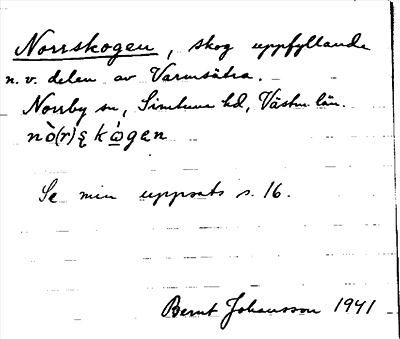 Norrskogen, skog uppfyllande
n. v. delen av Varmsätra.
Norrby sn, Simtuna hd, Västm län.
nò(r)s̨kώgen
Se min uppsats s. 16.
Bernt Johansson 1941